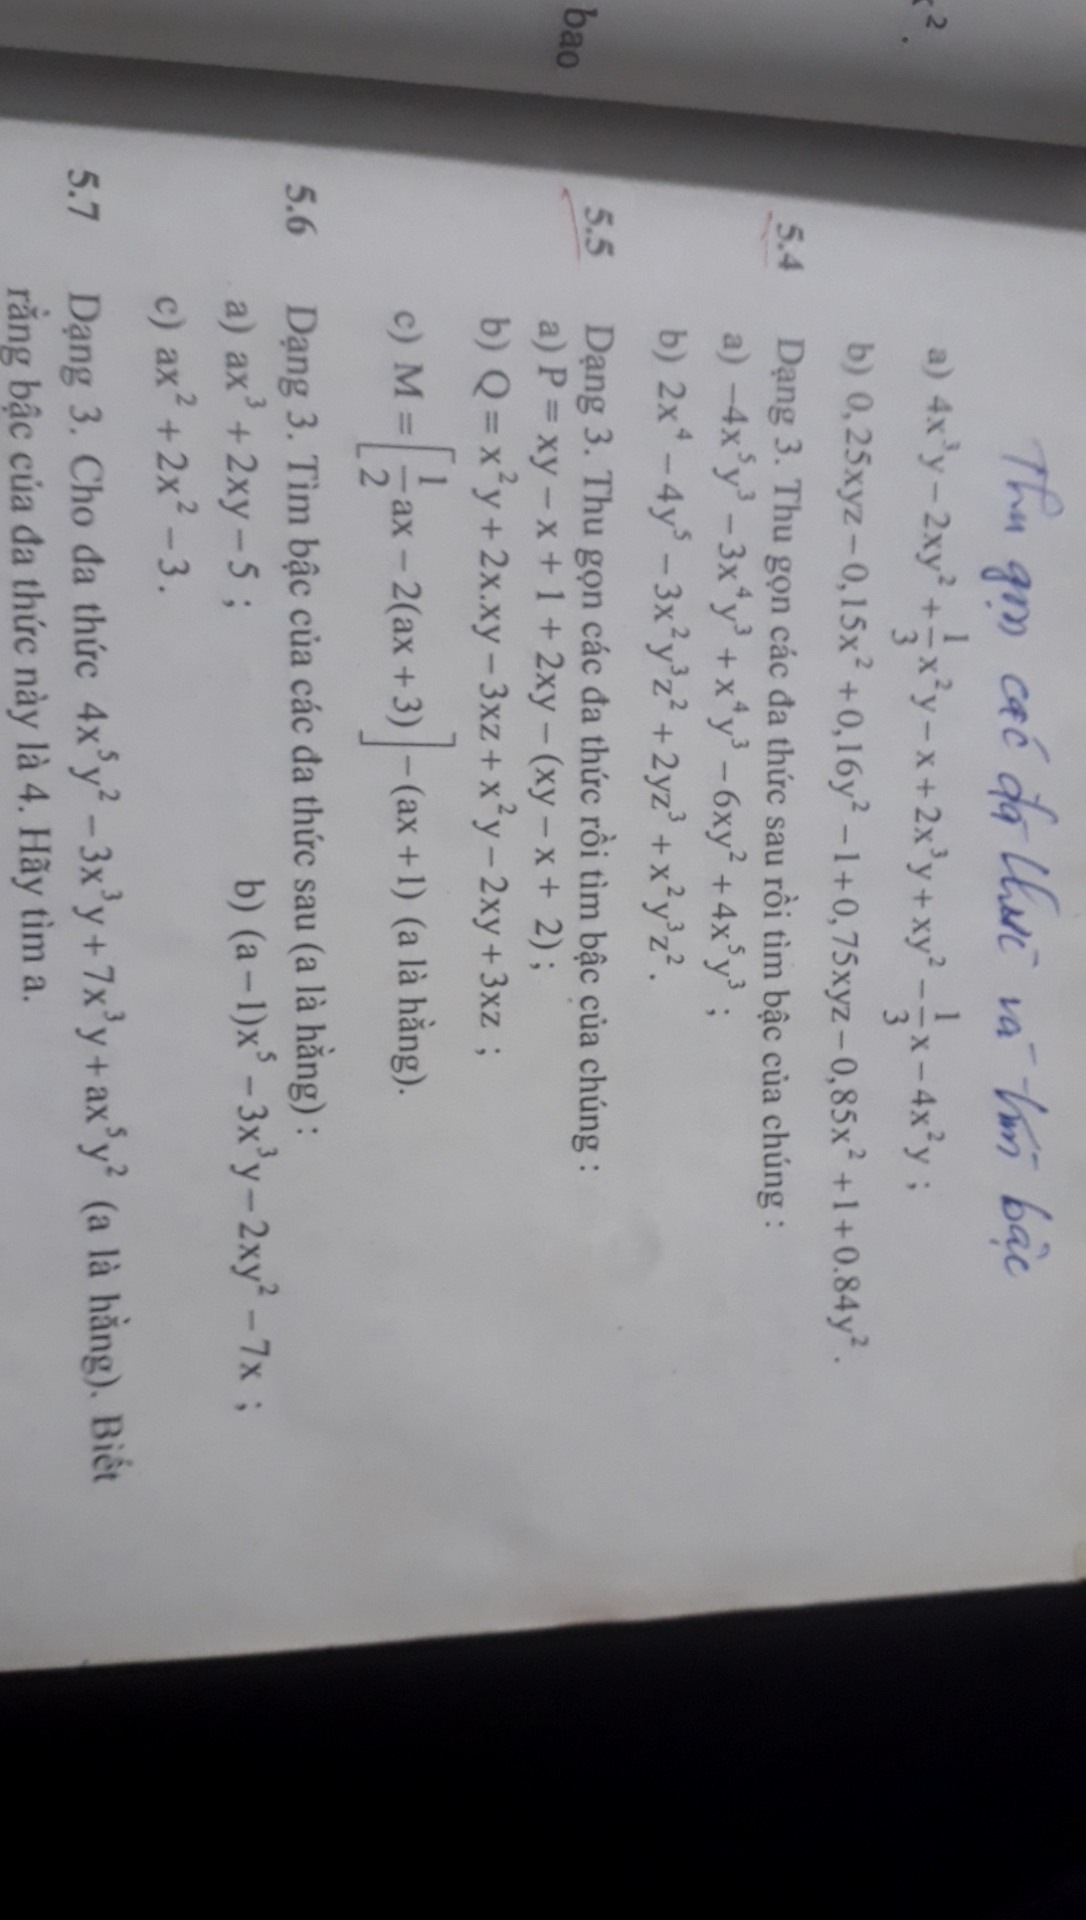 x².
bao
Thu gọn các đa thức và tìm bậc
a) 4x³y – 2xy² + 1/3 x²y – x + 2x³y + xy² – 1/3 x – 4x²y ;
b) 0,25xyz – 0,15x² + 0,16y² – 1 + 0,75xyz – 0,85x² + 1 + 0.84y².
5.4 Dạng 3. Thu gọn các đa thức sau rồi tìm bậc của chúng :
a) –4x⁵y³ – 3x⁴y³ + x⁴y³ – 6xy² + 4x⁵y³ ;
b) 2x⁴ – 4y⁵ – 3x²y³z² + 2yz³ + x²y³z² .
5.5 Dạng 3. Thu gọn các đa thức rồi tìm bậc của chúng :
a) P = xy – x + 1 + 2xy – (xy – x + 2) ;
b) Q = x²y + 2x.xy – 3xz + x²y – 2xy + 3xz ;
c) M = [1/2 ax – 2(ax + 3)] – (ax + 1) (a là hằng).
5.6 Dạng 3. Tìm bậc của các đa thức sau (a là hằng) :
a) ax³ + 2xy – 5 ; b) (a – 1)x⁵ – 3x³y – 2xy² – 7x ;
c) ax² + 2x² – 3 .
5.7 Dạng 3. Cho đa thức 4x⁵y² – 3x³y + 7x³y + ax⁵y² (a là hằng). Biết
rằng bậc của đa thức này là 4. Hãy tìm a.